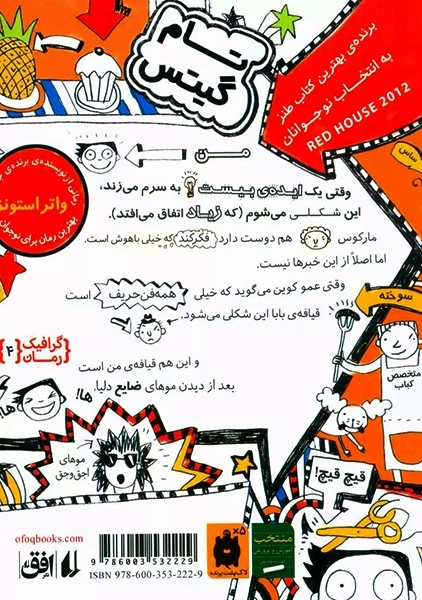 تام
گیتس
برنده‌ی بهترین کتاب طنز
به انتخاب نوجوانان
RED HOUSE 2012
من
وقتی یک ایده‌ی بیست به سرم می‌زند،
این شکلی می‌شوم (که زیاد اتفاق می‌افتد).
مارکوس هم دوست دارد فکر کند که خیلی باهوش است.
اما اصلاً از این خبرها نیست.
وقتی عمو کوین می‌گوید که خیلی همه‌فن‌حریف است
قیافه‌ی بابا این شکلی می‌شود.
و این هم قیافه‌ی من است
بعد از دیدن موهای ضایع دلیا.
ها!
ها!
موهای
اجق‌وجق
رمانی از نویسنده‌ی برنده‌ی
واتر استونز
بهترین رمان برای نوجوان
گرافیک
رمان
۴
ساس
سوخته
متخصص
کباب
قیچ قیچ!
منتخب
آموزش و پرورش
۵×
لاک‌پشت پرنده
ofoqbooks.com
افق
9 786003 532229
ISBN 978-600-353-222-9